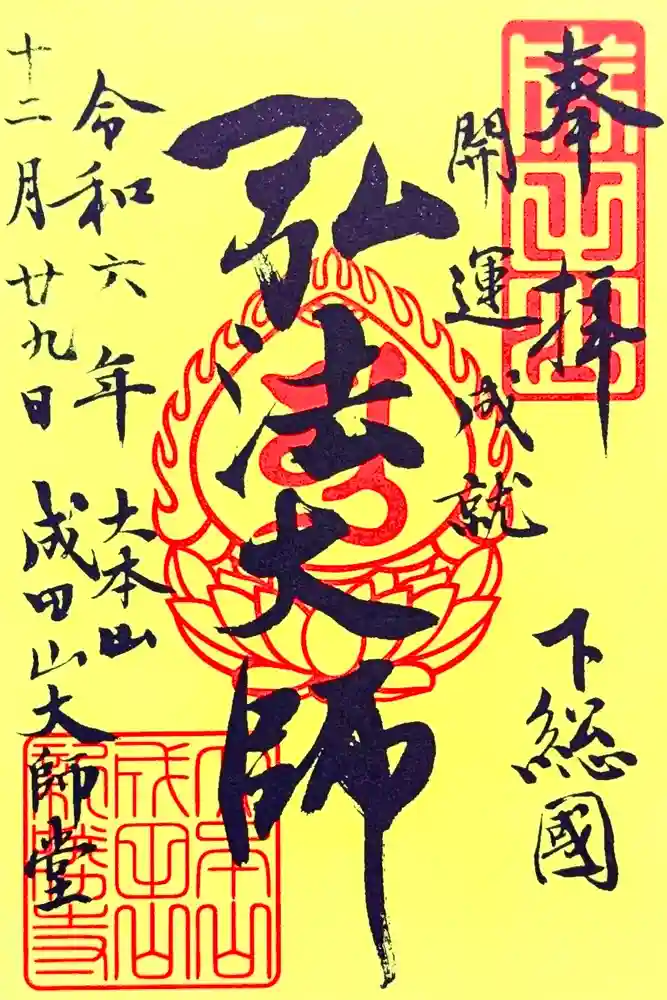 奉拝
下総國
開運成就
弘法大師
令和六年
大本山
十二月廿九日
成田山大師堂
大本山
成田山
新勝寺